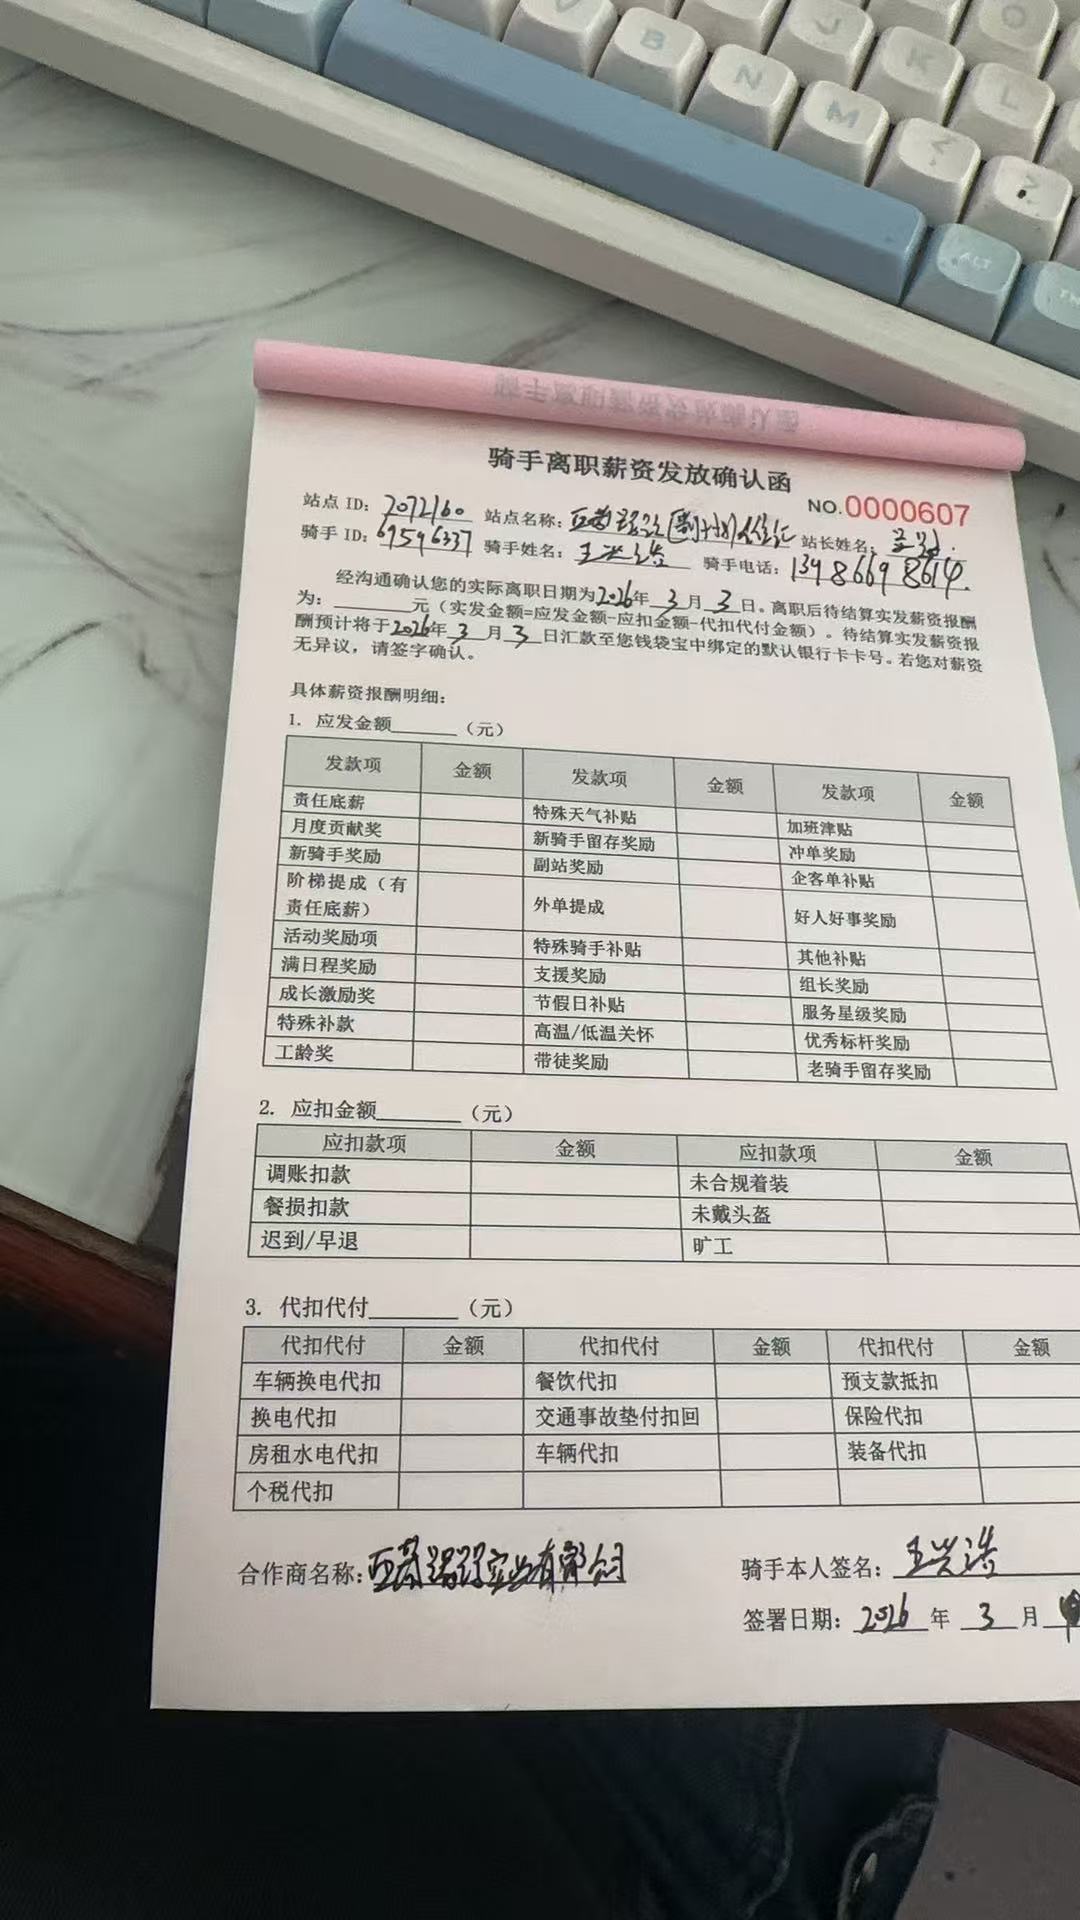 V
B
N
M
J
K
L
O
ALT
骑手离职薪资发放确认函
NO.0000607
站点 ID: 7072160 站点名称: 站长姓名:
骑手 ID: 69596337 骑手姓名: 王兴浩 骑手电话: 13986698614
经沟通确认您的实际离职日期为2026年 3 月 3 日。离职后待结算实发薪资报酬
为: 元（实发金额=应发金额-应扣金额-代扣代付金额）。待结算实发薪资报
酬预计将于2026年 3 月 3 日汇款至您钱袋宝中绑定的默认银行卡卡号。若您对薪资
无异议，请签字确认。
具体薪资报酬明细:
1. 应发金额 （元）
发款项 金额 发款项 金额 发款项 金额
责任底薪 特殊天气补贴 加班津贴
月度贡献奖 新骑手留存奖励 冲单奖励
新骑手奖励 副站奖励 企客单补贴
阶梯提成（有
责任底薪） 外单提成 好人好事奖励
活动奖励项 特殊骑手补贴 其他补贴
满日程奖励 支援奖励 组长奖励
成长激励奖 节假日补贴 服务星级奖励
特殊补款 高温/低温关怀 优秀标杆奖励
工龄奖 带徒奖励 老骑手留存奖励
2. 应扣金额 （元）
应扣款项 金额 应扣款项 金额
调账扣款 未合规着装
餐损扣款 未戴头盔
迟到/早退 旷工
3. 代扣代付 （元）
代扣代付 金额 代扣代付 金额 代扣代付 金额
车辆换电代扣 餐饮代扣 预支款抵扣
换电代扣 交通事故垫付扣回 保险代扣
房租水电代扣 车辆代扣 装备代扣
个税代扣
合作商名称: 骑手本人签名: 王兴浩
签署日期: 2026 年 3 月